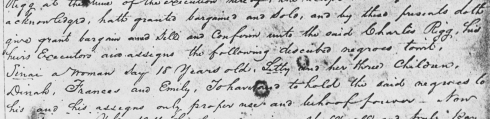 acknowledged, hath granted bargained and sold, and by these presents doth
give grant bargain and Sell and Confirm unto the said Charles Rigg, his
heirs Executors and assigns the following described negroes, towit,
a woman Say 18 Years old, Letty and her three Children,
Dinah, Frances and Emily, To have and to hold the said negroes to
his and his assigns only proper use and behoof forever - Now